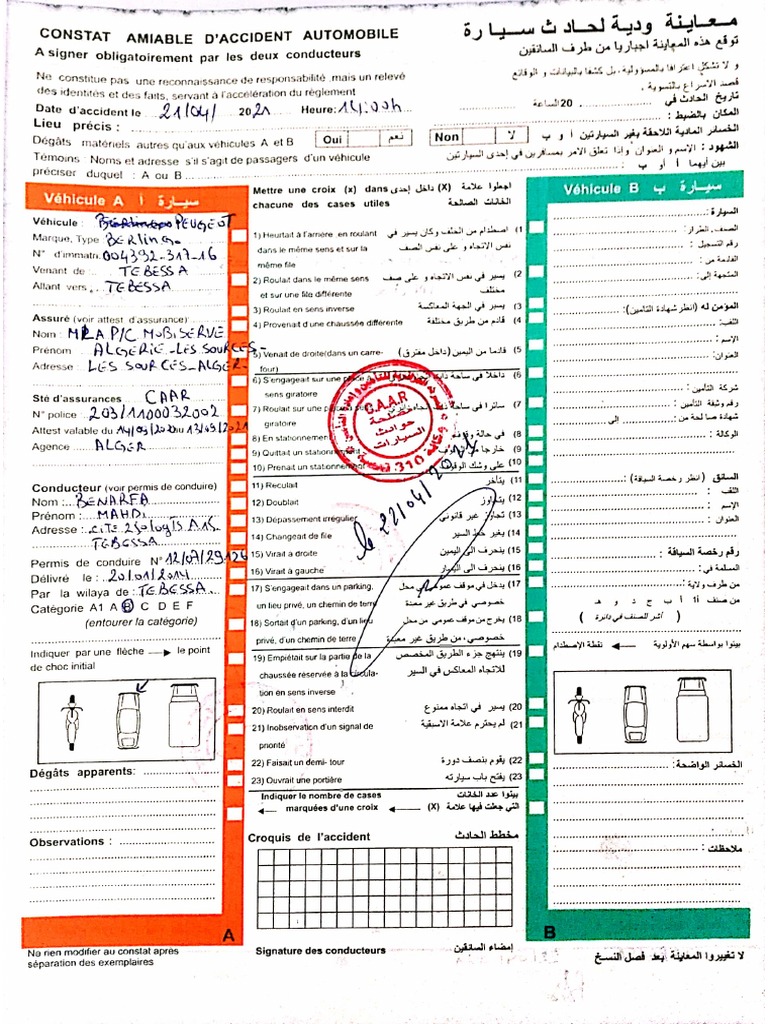 CONSTAT AMIABLE D'ACCIDENT AUTOMOBILE
A signer obligatoirement par les deux conducteurs
معاينة ودية لحادث سيارة
توقع هذه المعاينة اجباريا من طرف السائقين
Ne constitue pas une reconnaissance de responsabilité, mais un relevé
des identités et des faits, servant à l'accélération du règlement
و لا تشكل اعترافا بالمسؤولية، بل كشفا بالبيانات و الوقائع
قصد الاسراع بالتسوية.
Date d'accident le 21/04/ 2021 Heure: 14:00h
تاريخ الحادث في 20 الساعة
Lieu précis :
المكان بالضبط :
Dégâts matériels autres qu'aux véhicules A et B
Oui نعم Non لا
الخسائر المادية اللاحقة بغير السيارتين أ و ب
Témoins : Noms et adresse s'il s'agit de passagers d'un véhicule
préciser duquel : A ou B
الشهود : الإسم و العنوان وإذا تعلق الامر بمسافرين في إحدى السيارتين
بين أيهما أ أو ب :
Véhicule A سيارة أ
Véhicule : PEUGEOT
Marque, Type BERLingo
N° d'immatri. 004392-317-16
Venant de TEBESSA
Allant vers TEBESSA
Assuré (voir attest d'assurance)
Nom : MLA P/C MOBISERVE
Prénom ALGERIE-LES SOURCES-
Adresse : LES SOURCES-ALGER-
Sté d'assurances CAAR
N° police : 203/1100032002
Attest valable du 14/09/2020 au 13/09/2021
Agence ALGER
Conducteur (voir permis de conduire)
Nom : BENARFA
Prénom : MAHDI
Adresse : CITE 250 logts A15
TEBESSA
Permis de conduire N° 12/07/29126
Délivré le : 20/01/2014
Par la wilaya de : TEBESSA
Catégorie A1 A B C D E F
(entourer la catégorie)
Indiquer par une flèche le point
de choc initial
Dégâts apparents:
Observations :
A
Ne rien modifier au constat après
séparation des exemplaires
Mettre une croix (x) dans
chacune des cases utiles
اجعلوا علامة (X) داخل إحدى
الخانات الصالحة
1) Heurtait à l'arrière, en roulant
dans le même sens et sur la
même file
1) اصطدام من الخلف وكان يسير في
نفس الاتجاه و على نفس الصف
2) Roulait dans le même sens
et sur une file différente
2) يسير في نفس الاتجاه و على صف
مختلف
3) Roulait en sens inverse
3) يسير في الجهة المعاكسة
4) Provenait d'une chaussée différente
4) قادم من طريق مختلفة
5) Venait de droite (dans un carre-
four)
5) قادما من اليمين (داخل مفترق)
6) S'engageait sur une place à
sens giratoire
7) Roulait sur une place
giratoire
8) En stationnement
9) Quittait un stationnement
10) Prenait un stationnement
10) على وشك الوقوف
11) Reculait
11) يتأخر
12) Doublait
12) يتجاوز
13) Dépassement irrégulier
13) تجاوز غير قانوني
14) Changeait de file
14) يغير خط السير
15) Virait à droite
15) ينحرف الى اليمين
16) Virait à gauche
16) ينحرف الى اليسار
17) S'engageait dans un parking,
un lieu privé, un chemin de terre
17) يدخل في موقف عمومي، في محل
خصوصي في طريق غير معبدة
18) Sortait d'un parking, d'un lieu
privé, d'un chemin de terre
18) يخرج من موقف عمومي من محل
خصوصي، من طريق غير معبدة
19) Empiétait sur la partie de la
chaussée réservée à la circula-
tion en sens inverse
19) ينتهج جزء الطريق المخصص
للاتجاه المعاكس في السير
20) Roulait en sens interdit
20) يسير في اتجاه ممنوع
21) Inobservation d'un signal de
priorité
21) لم يحترم علامة الاسبقية
22) Faisait un demi- tour
22) يقوم بنصف دورة
23) Ouvrait une portière
23) يفتح باب سيارته
Indiquer le nombre de cases
marquées d'une croix
بينوا عدد الخانات
التي جعلت فيها علامة (X)
C.A.A.R
مصلحة
حوادث
السيارات
310
le 22/04/2021
Croquis de l'accident مخطط الحادث
Signature des conducteurs إمضاء السائقين
Véhicule B سيارة ب
السيارة :
الصنف، الطراز:
رقم التسجيل :
القادمة من :
المتجهة إلى:
المؤمن له (انظر شهادة التأمين):
اللقب:
الإسم :
العنوان:
شركة التأمين :
رقم وثيقة التأمين :
شهادة صالحة من : إلى
الوكالة :
السائق (انظر رخصة السياقة) :
اللقب :
الإسم :
العنوان :
رقم رخصة السياقة :
المسلمة في :
من طرف ولاية:
من صنف أ1 أ ب ج د و هـ
( أشر للصنف في دائرة )
بينوا بواسطة سهم الأولوية نقطة الإصطدام
الخسائر الواضحة :
ملاحظات :
B
لا تغييروا المعاينة بعد فصل النسخ